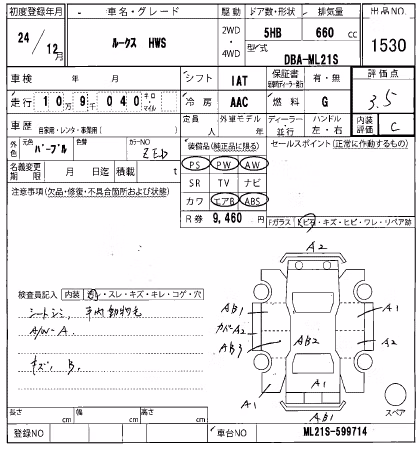 初度登録年月 車名・グレード 駆動 ドア数・形状 排気量 出品NO
24年 12月 ルークス HWS 2WD・4WD 5HB 660 cc 1530
型式 DBA-ML21S
車検 年 月 シフト IAT 保証書 有・無 評価点
走行 10万9千040キロ・マイル 冷房 AAC 燃料 G 3.5
車歴 自家用・レンタ・事業用( ) 定員 人 外車モデル 年 ディーラー・並行 ハンドル 左・右 内装評価 C
外色 元色 パープル 色替 カラーNO ZED 装備品(純正品に限る) セールスポイント(正常に作動するもの)
名義変更期限 月 日迄 積載 t PS PW AW
注意事項(欠品・修復・不具合箇所および状態) SR TV ナビ
カワ エアB ABS
R券 9,460 円 Fガラス ヒビ・キズ・ヒビ・ワレ・リペア跡
検査員記入 内装 スレ・キズ・キレ・コゲ・穴
シートシミ, 車内動物毛
A/W-A
キズ, B,
A2
AB1
A1
カバーA2
A2
AB3
AB2
A1
A1
AB1
スペア
長さ cm 幅 cm 高さ cm
登録NO 車台NO ML21S-599714